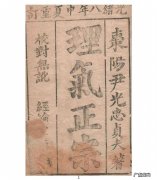 光緒八年中夏重訂
棗陽尹光忠貞夫著
理氣正宗
校對無訛
經綸